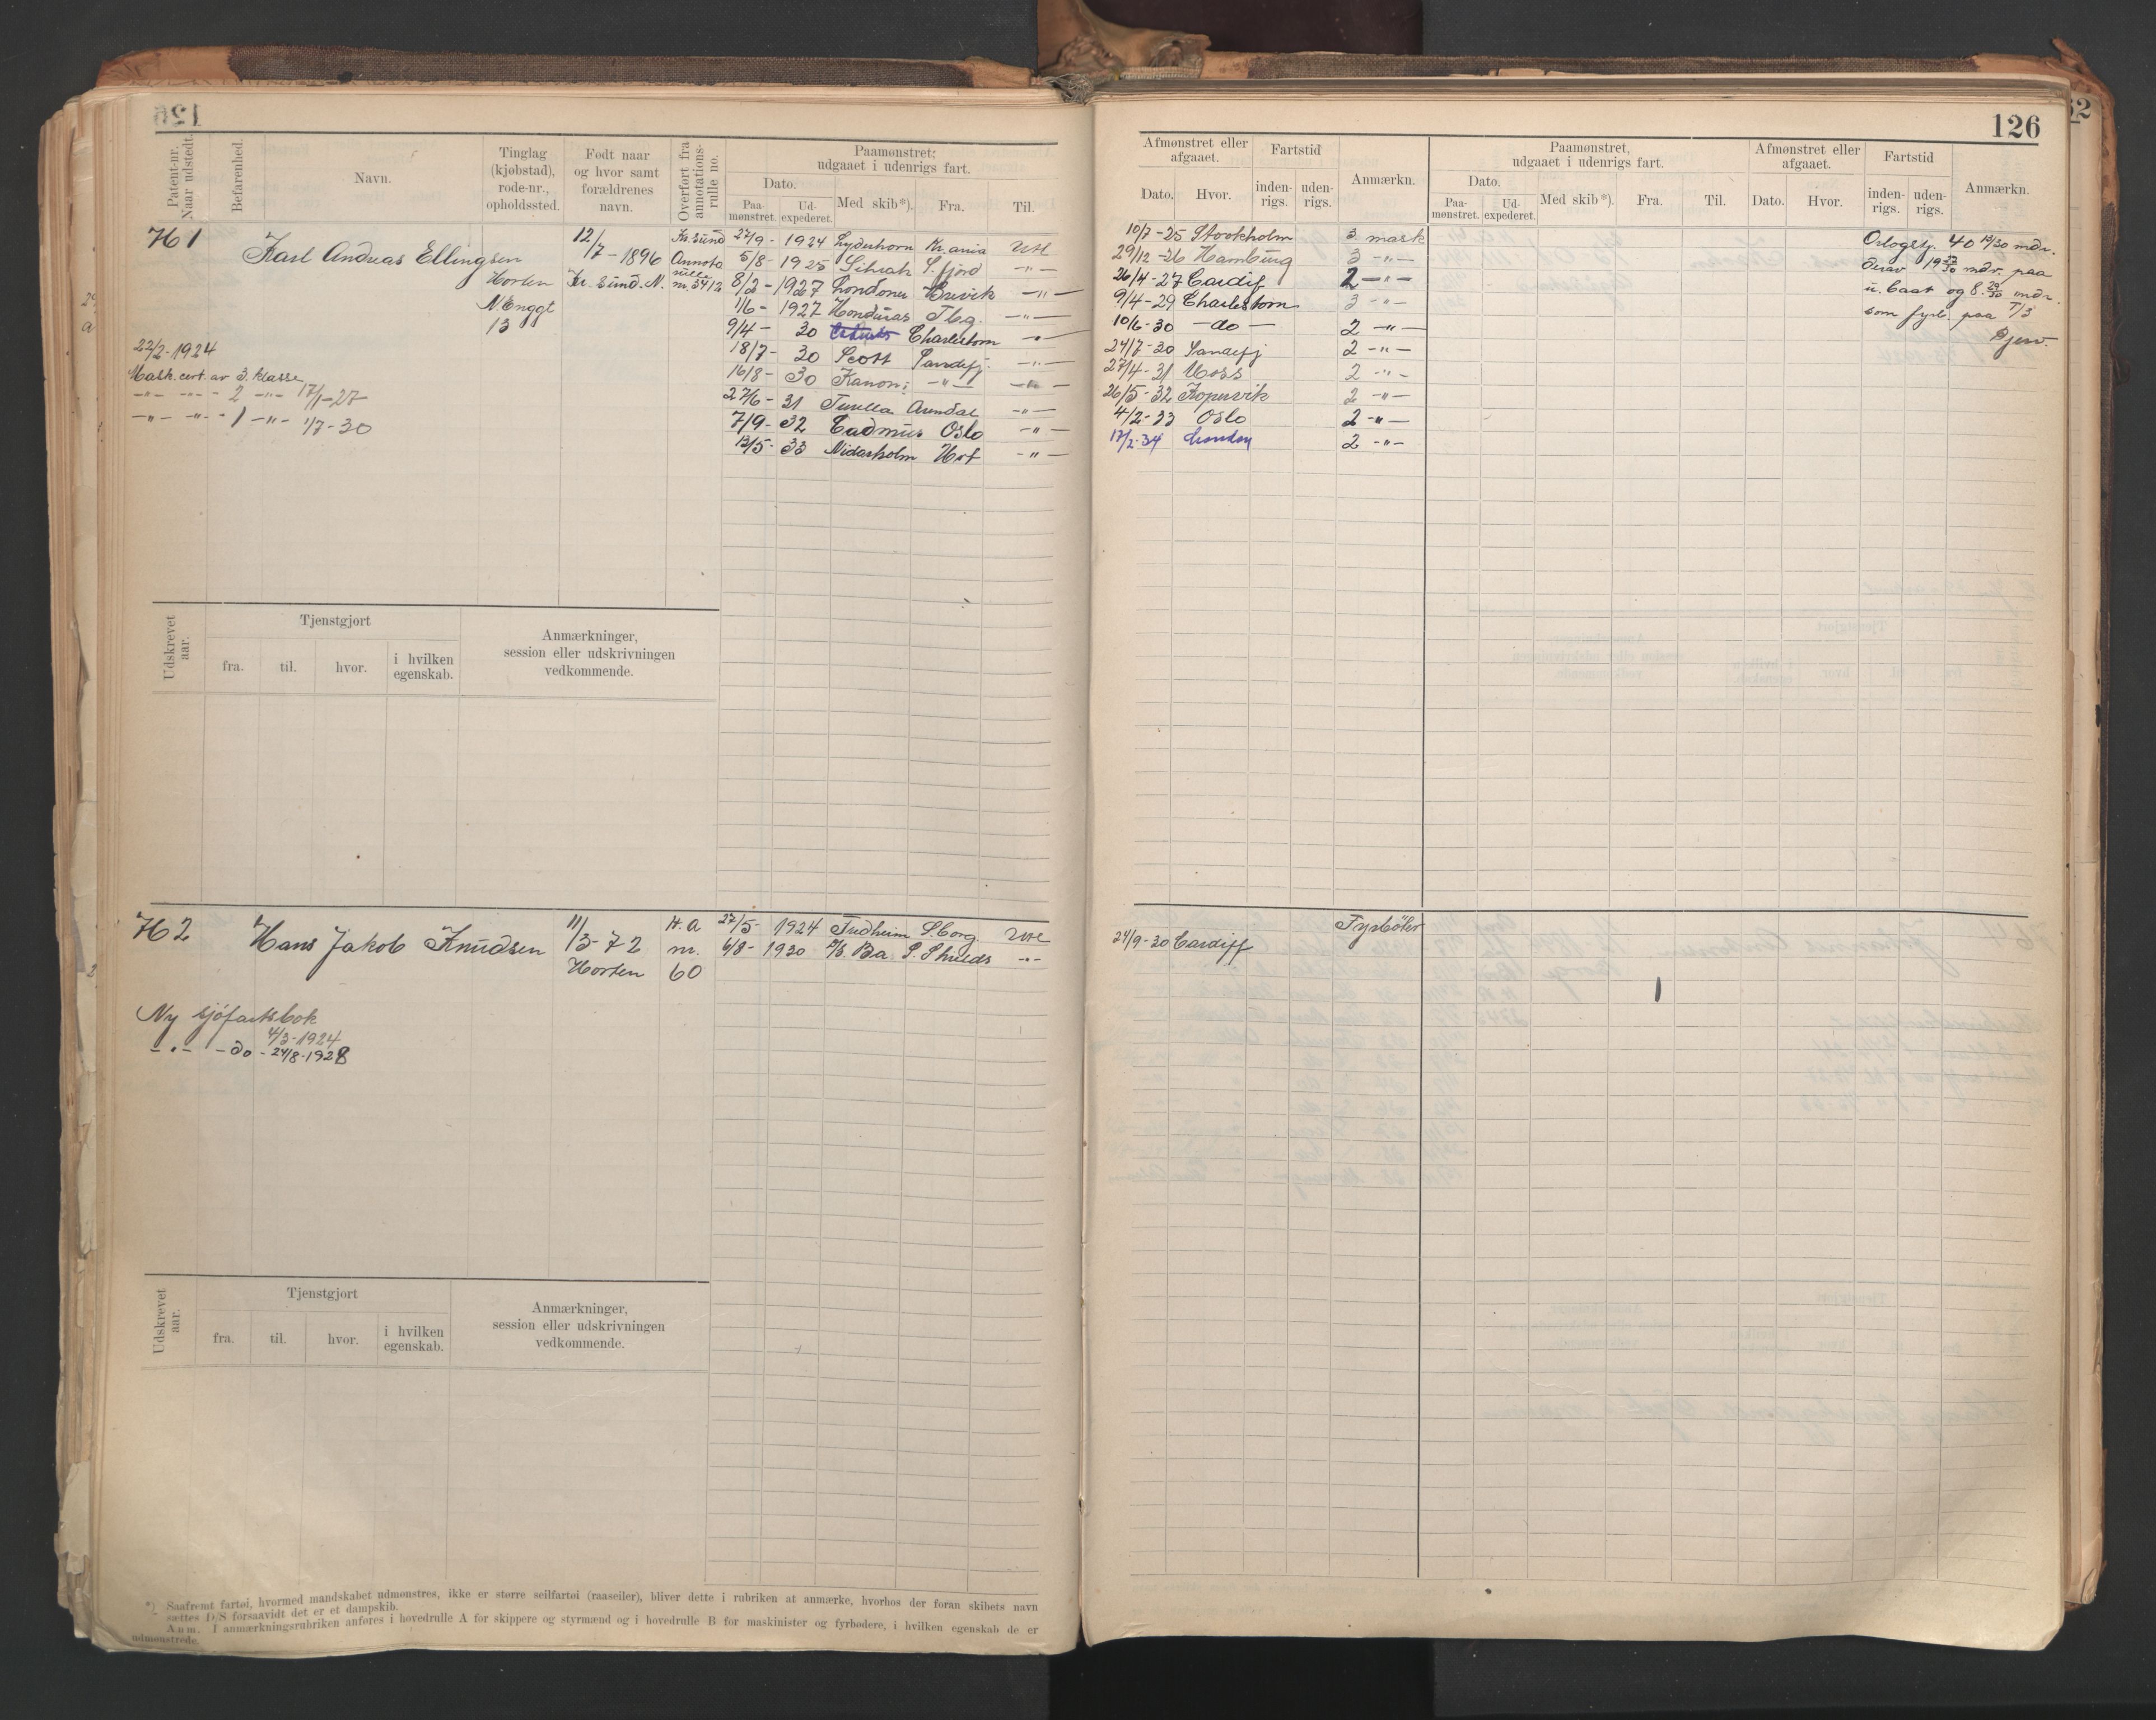 126
Patent-nr. Naar udstedt.
Befarenhed.
Navn.
Tinglag (kjøbstad), rode-nr., opholdssted.
Født naar og hvor samt forældrenes navn.
Overført fra annotations-rulle no.
Paamønstret; udgaaet i udenrigs fart.
Dato.
Paa-mønstret.
Ud-expederet.
Med skib*).
Fra.
Til.
Afmønstret eller afgaaet.
Dato.
Hvor.
Fartstid
inden-rigs.
uden-rigs.
Anmærkn.
Paamønstret, udgaaet i udenrigs fart.
Dato.
Paa-mønstret.
Ud-expederet.
Med skib*).
Fra.
Til.
Afmønstret eller afgaaet.
Dato.
Hvor.
Fartstid
inden-rigs.
uden-rigs.
Anmærkn.
H 1
Karl Andreas Ellingsen
Horten
13
12/7-1896
Kr. sund. N.
Kr. sund Annota rulle nr. 3412
22/2-1924
Mask. cert. av 3. klasse
-"- -"- 2 -"- 17/1-27
-"- -"- 1 -"- 1/7-30
27/9-1924 Lyderhorn Kr.ania Utl
5/8-1925 S.fjord -"-
8/2-1927 Londoner Brevik -"-
1/6-1927 Honduras Tbg. -"-
9/4-30 Charlestom -"-
18/7-30 Scott Sandefj. -"-
16/8-30 Kanon: -"- -"-
27/6-31 Arendal -"-
7/9-32 Cadmus Oslo -"-
12/5-33 Nidarholm Hrt -"-
10/7-25 Stockholm 3. mask
29/12-26 Hamburg 3 -"-
26/4-27 Cardif 2 -"-
9/4-29 Charlestom 3 -"-
10/6-30 -do- 2 -"-
24/7-30 Sandefj 2 -"-
27/4-31 Moss 2 -"-
26/5-32 Kopervik 2 -"-
4/2-33 Oslo 2 -"-
17/2-34 London 2 -"-
Orlogstj. 40 13/30 mdr.
derav 19 mdr. paa
u. baat og 8. 29/30 mdr.
som fyrb. paa T/3
Udskrevet aar.
Tjenstgjort
fra.
til.
hvor.
i hvilken egenskab.
Anmærkninger, session eller udskrivningen vedkommende.
H 2
Hans Jakob Knudsen
11/3-72
Horten
H.a nr. 60
Ny sjøfartsbok
4/3-1924
-"- -do- 24/8-1928
27/5-1924 S.borg. Utl
6/8-1930 M/S. Ba S. Shields -"-
24/9-30 Cardiff
Fyrbøter
Udskrevet aar.
Tjenstgjort
fra.
til.
hvor.
i hvilken egenskab.
Anmærkninger, session eller udskrivningen vedkommende.
*) Saafremt fartøi, hvormed mandskabet udmønstres, ikke er større seilfartøi (raaseiler), bliver dette i rubriken at anmærke, hvorhos der foran skibets navn
sættes D/S forsaavidt det er et dampskib.
Anm. I anmærkningsrubriken anføres i hovedrulle A for skippere og styrmænd og i hovedrulle B for maskinister og fyrbødere, i hvilken egenskab de er
udmønstrede.